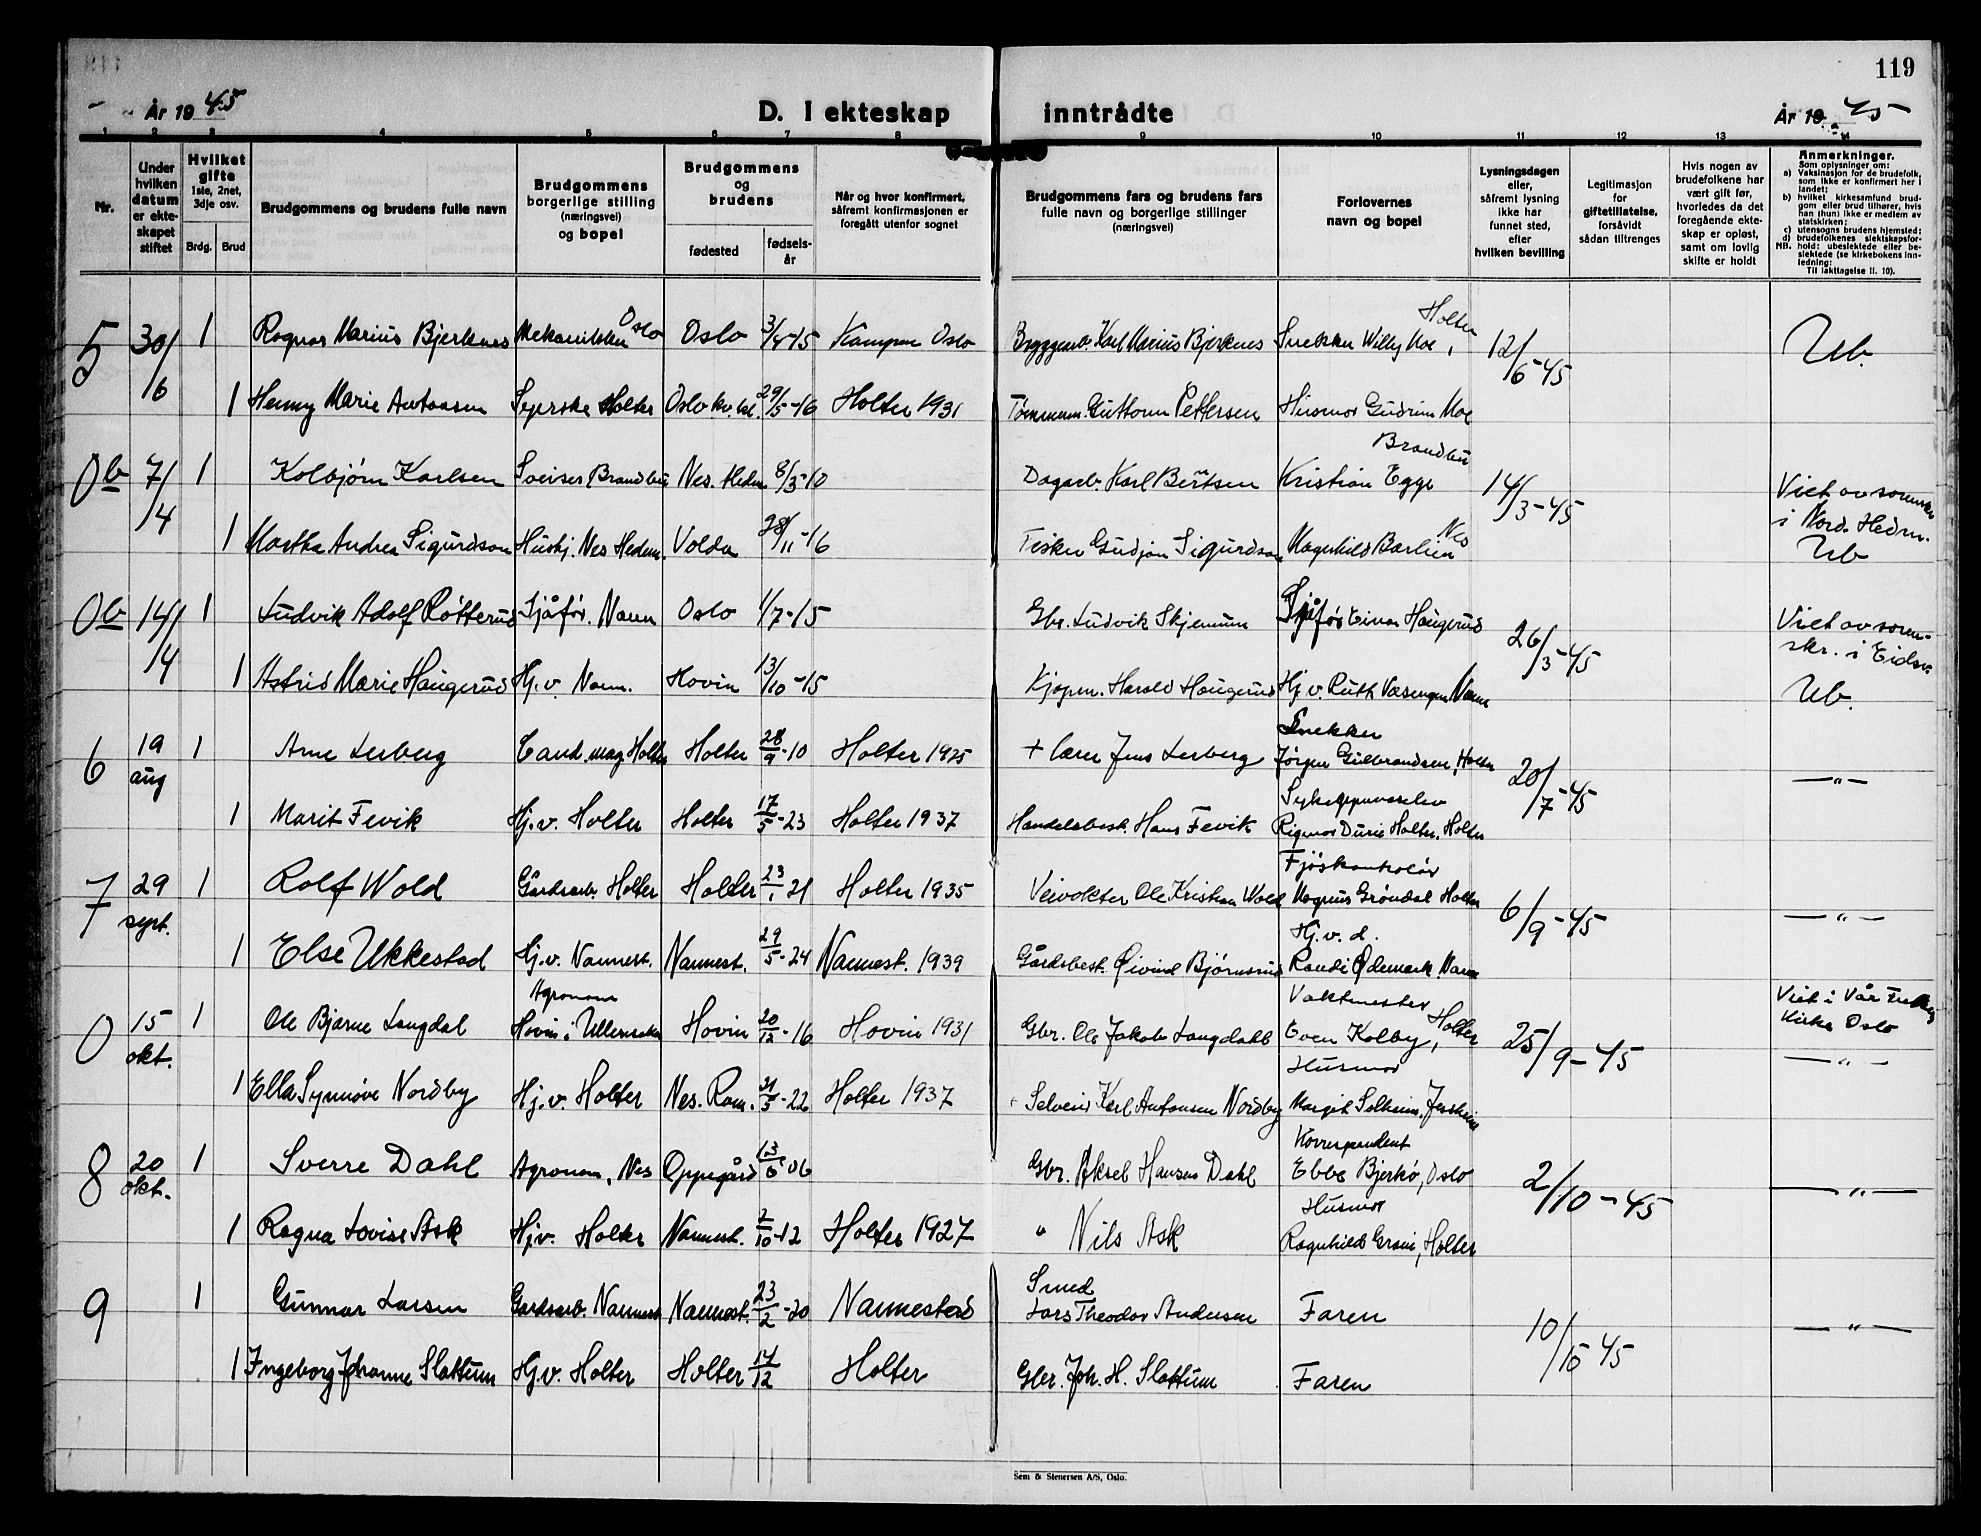 119
År 1945
D. I ekteskap
inntrådte
År 1945
1 2 3 4 5 6 7 8 9 10 11 12 13 14
Nr.
Under hvilken datum er ekteskapet stiftet
Hvilket gifte
1ste, 2net, 3dje osv.
Brdg. Brud
Brudgommens og brudens fulle navn
Brudgommens borgerlige stilling (næringsvei) og bopel
Brudgommens og brudens
fødested
fødselsår
Når og hvor konfirmert, såfremt konfirmasjonen er foregått utenfor sognet
Brudgommens fars og brudens fars fulle navn og borgerlige stillinger (næringsvei)
Forlovernes navn og bopel
Lysningsdagen eller, såfremt lysning ikke har funnet sted, efter hvilken bevilling
Legitimasjon for giftetillatelse, forsåvidt sådan tiltrenges
Hvis nogen av brudefolkene har vært gift før, hvorledes da det foregående ekteskap er opløst, samt om lovlig skifte er holdt
Anmerkninger.
Som oplysninger om:
a) Vaksinasjon for de brudefolk, som ikke er konfirmert her i landet;
b) hvilket kirkesamfund brudgom eller brud tilhører, hvis han (hun) ikke er medlem av statskirken;
c) utensogns brudens hjemsted;
d) brudefolkenes slektskapsforhold: ubeslektede eller beslektede (se kirkebokens innledning:
NB. Til iakttagelse II. 10).
5 30/6 1 Ragnar Marius Bjerknes Mekaniker Oslo Oslo 3/4-15 Kampen Oslo Byggm. Karl Marius Bjerknes Snekker Willy Moe, Holter 12/6-45 Ub.
1 Henny Marie Antonsen Syerske Holter Oslo kv.kl. 29/5-16 Holter 1931 Tømmerm. Guttorm Pettersen Husmor Gudrun Moe
Ob 7/4 1 Kolbjørn Karlsen Sveiser Brandbu Nes. Hedm 8/3-10 Dagarb. Karl Bertsen Kristian Egge Brandbu 14/3-45 Viet av sorenskr i Nord. Hedm.
1 Martha Andrea Sigurdson Hushj. Nes Hedm. Volda 28/11-16 Fisker Gudjon Sigurdson Magnhild Barlien Nes Ub
Ob 14/4 1 Ludvik Adolf Røtterud Sjåfør. Nann Oslo 1/7-15 Gbr. Ludvik Skjennum Sjåfør Einar Haugerud 26/3-45 Viet av sorenskr. i Eidsv.
1 Astrid Marie Haugerud Hj.v. Nann. Hovin 13/10-15 Kjøpm. Harald Haugerud Hj.v. Ruth Væsengen Nann Ub.
6 19 aug 1 Arne Lerberg Cand. mag. Holter Holter 28/9-10 Holter 1925 + lærer Jens Lerberg Snekker Jørgen Gulbrandsen, Holter 20/7-45 —"—
1 Marit Fevik Hj.v. Holter Holter 17/5-23 Holter 1937 Handelsbest. Hans Fevik Sykepleierelev Rigmor Durie Holter, Holter
7 29 sept. 1 Rolf Wold Gårdsarb. Holter Holter 23/1 21 Holter 1935 Veivokter Ole Kristian Wold Fjøskontrolør Magnus Grøndal Holter 6/9-45 —"—
1 Else Ukkestad Hj.v. Nannest. Nannest. 29/5-24 Nannest. 1939 Gårdsbest. Øivind Bjørnsrud Hj.v.d. Randi Ødemark Nann
0 15 okt. 1 Ole Bjarne Langdal Agronom Hovin i Ullensaker Hovin 20/12-16 Hovin 1931 Gbr. Ole Jakob Langdahl Vaktmester Even Kolby, Holter 25/9-45 Viet i Vår Frelsers Kirke Oslo —"—
1 Ella Synnøve Nordby Hj.v. Holter Nes. Rom. 21/5-22 Holter 1937 Karl Antonsen Nordby Husmor Margit Solheim, Jessheim
8 20 okt. 1 Sverre Dahl Agronom, Nes Oppegård 13/6 06 Gbr. Aksel Hansen Dahl Korrespondent Ebbe Bjerkø, Oslo 2/10-45 —"—
1 Ragna Lovise Ask Hj.v. Holter Nannest. 2/10-12 Holter 1927 " Nils Ask Husmor Ragnhild Grani, Holter
9 1 Gunnar Larsen Gardsarb. Nannest Nannest. 23/2-20 Nannestad Smed Lars Theodor Andersen Faren 10/10 45 —"—
1 Ingeborg Johanne Slattum Hj.v. Holter Holter 14/12 Holter Gbr. Joh. H. Slattum Faren
Sem & Stenersen A/S, Oslo.